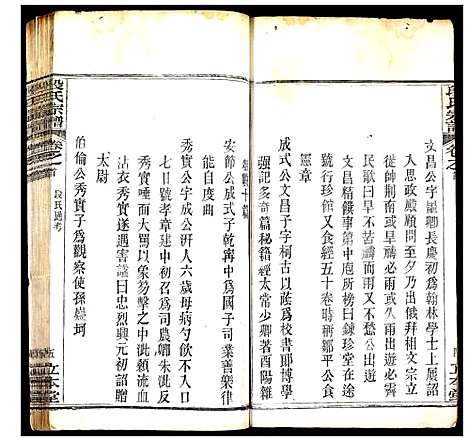 文昌公字墨卿長慶初爲翰林學士上屢詔
入思政殿顧問至夕乃出俄拜相文宗立
徙帥荆南或旱禱必雨或久雨出遊必霽
民歌曰旱不苦禱而雨又不愁公出遊
文昌精饌事第中庖所榜曰鍊珍堂在途
號行珍館又食經五十卷時稱鄒平公食
憲章
成式公文昌子字柯古以蔭爲校書郎博學
强記多奇篇秘籍經太常少卿著酉陽雜
俎數十篇
安節公成式子乾寧中爲國子司業善樂律
能自度曲
秀實公字成公汧人六歲母病勺飲不入口
七日號孝章建中初召爲司農卿朱泚反
秀實唾面大罵以象笏擊之中泚額流血
沾衣秀實遂遇害諡曰忠烈興元初詔贈
太尉
伯倫公秀實子爲觀察使孫嶷珂
段氏宗譜
卷之首
段氏通考
五
立本堂
段氏宗譜
卷之首
立本堂